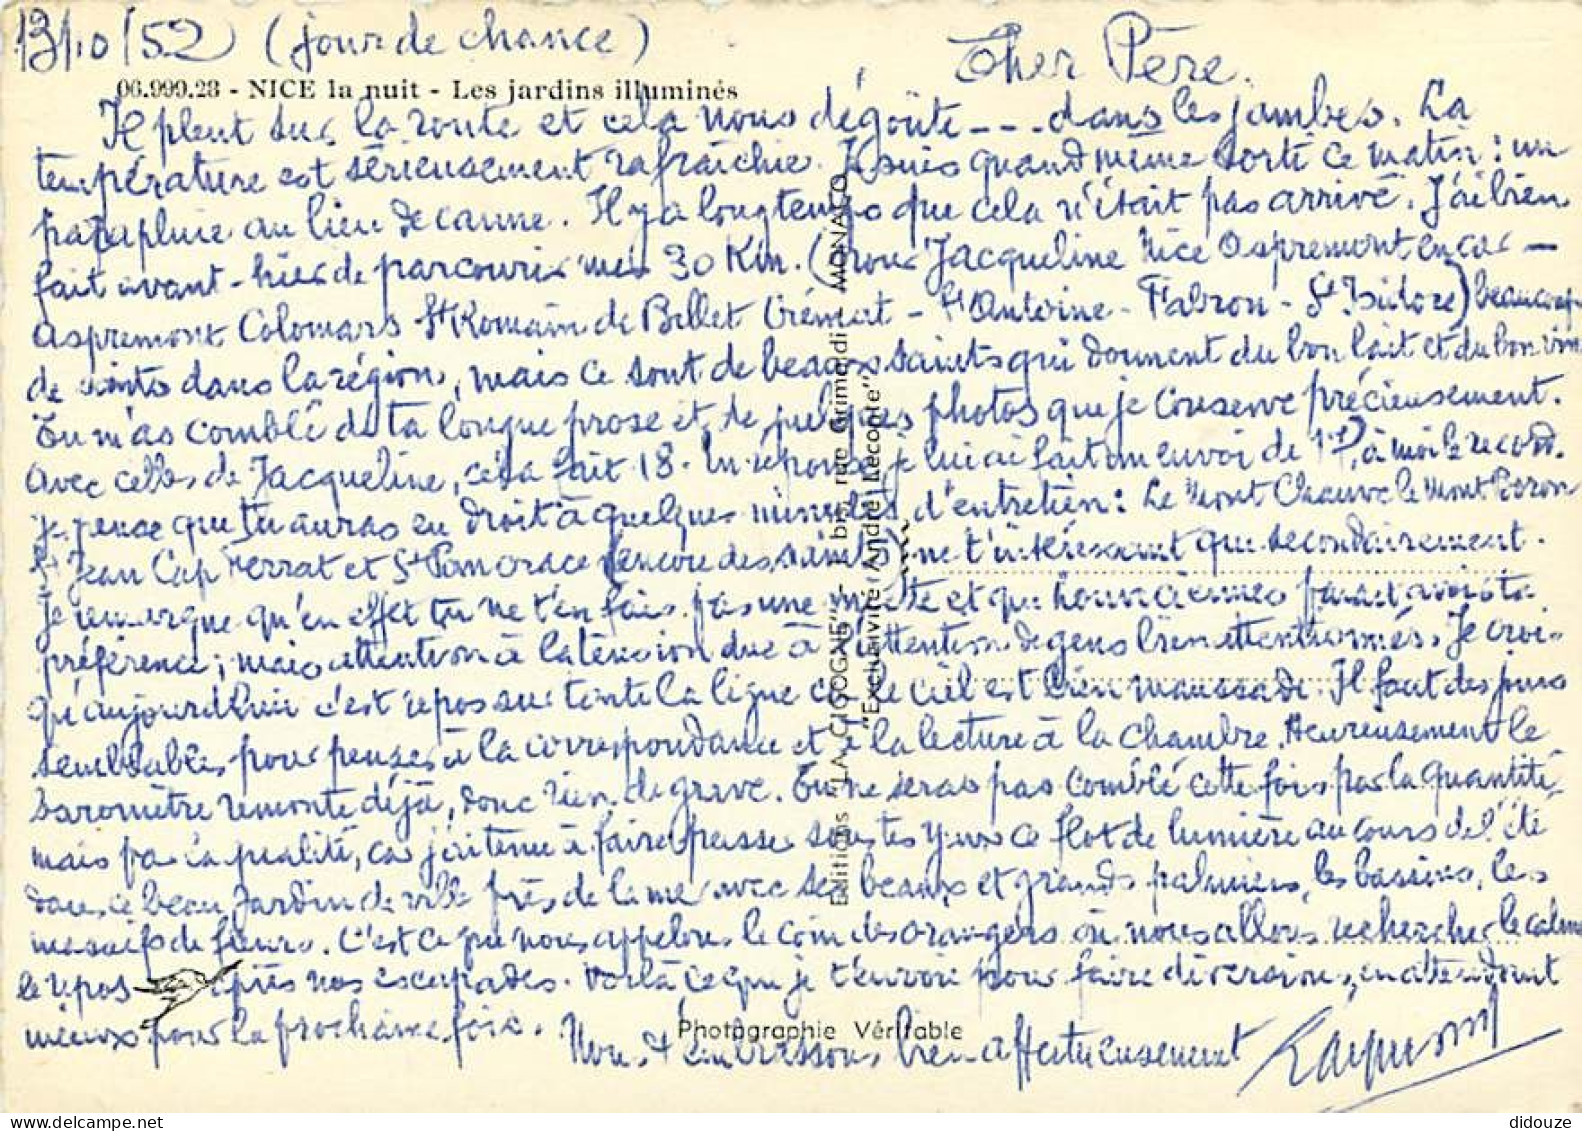 13/10/52 (jour de chance)
Cher Père.
06.999.28 - NICE la nuit - Les jardins illuminés
Il pleut sur la route et cela nous dégoûte ---- dans les jambes. La
température est sérieusement rafraîchie. Je suis quand même sorti ce matin : un
parapluie au lieu de canne. Il y a longtemps que cela n'était pas arrivé. J'ai bien
fait avant-hier de parcourir mes 30 Km. (pour Jacqueline Nice Aspremont en car —
Aspremont Colomars St Romain de Bellet Crémat - St Antoine - Fabron - St Isidore) beaucoup
de saints dans la région, mais ce sont de beaux saints qui donnent du bon lait et du bon vin
Tu m'as comblé de ta longue prose et de quelques photos que je conserve précieusement.
Avec celles de Jacqueline, cela fait 18. En réponse je lui ai fait un envoi de 11, à moi le record.
je pense que tu auras eu droit à quelques minutes d'entretien : Le Mont Chauve le Mont Boron
St Jean Cap Ferrat et St Pancrace (encore des saints) ne t'intéressant que secondairement.
Je remarque qu'en effet tu ne t'en fais pas une miette et que avoir ta
préférence ; mais attention à la tension due à l'attention de gens bien attentionnés. Je crois
qu'aujourd'hui c'est repos sur toute la ligne car le ciel est bien maussade. Il faut des jours
semblables pour penser à la correspondance et à la lecture à la chambre. Heureusement le
baromètre remonte déjà, donc rien de grave. Tu ne seras pas comblé cette fois par la quantité
mais par la qualité, car j'ai tenu à faire passer sous tes yeux ce flot de lumière au cours de l'été
dans ce beau Jardin de ville près de la mer avec ses beaux et grands palmiers, les bassins, les
massifs de fleurs. C'est ce que nous appelons le coin des orangers où nous allons rechercher le calme
le repos après nos escapades. Voilà ce que je t'envoie pour faire diversion, en attendant
mieux pour la prochaine fois.
Nous t'embrassons bien affectueusement Raymond
Editions "LA CIGOGNE" - bis, rue Grimaldi - MONACO
"Exclusivité André Leconte"
Photographie Véritable
didouze